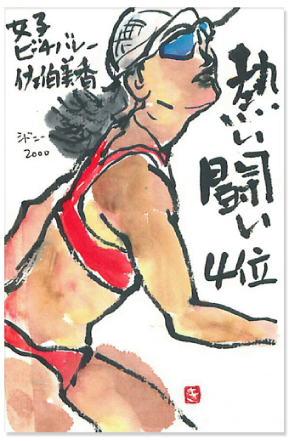 女子
ビーチバレー
佐伯美香
シドニー
2000
熱い闘い
4位
き